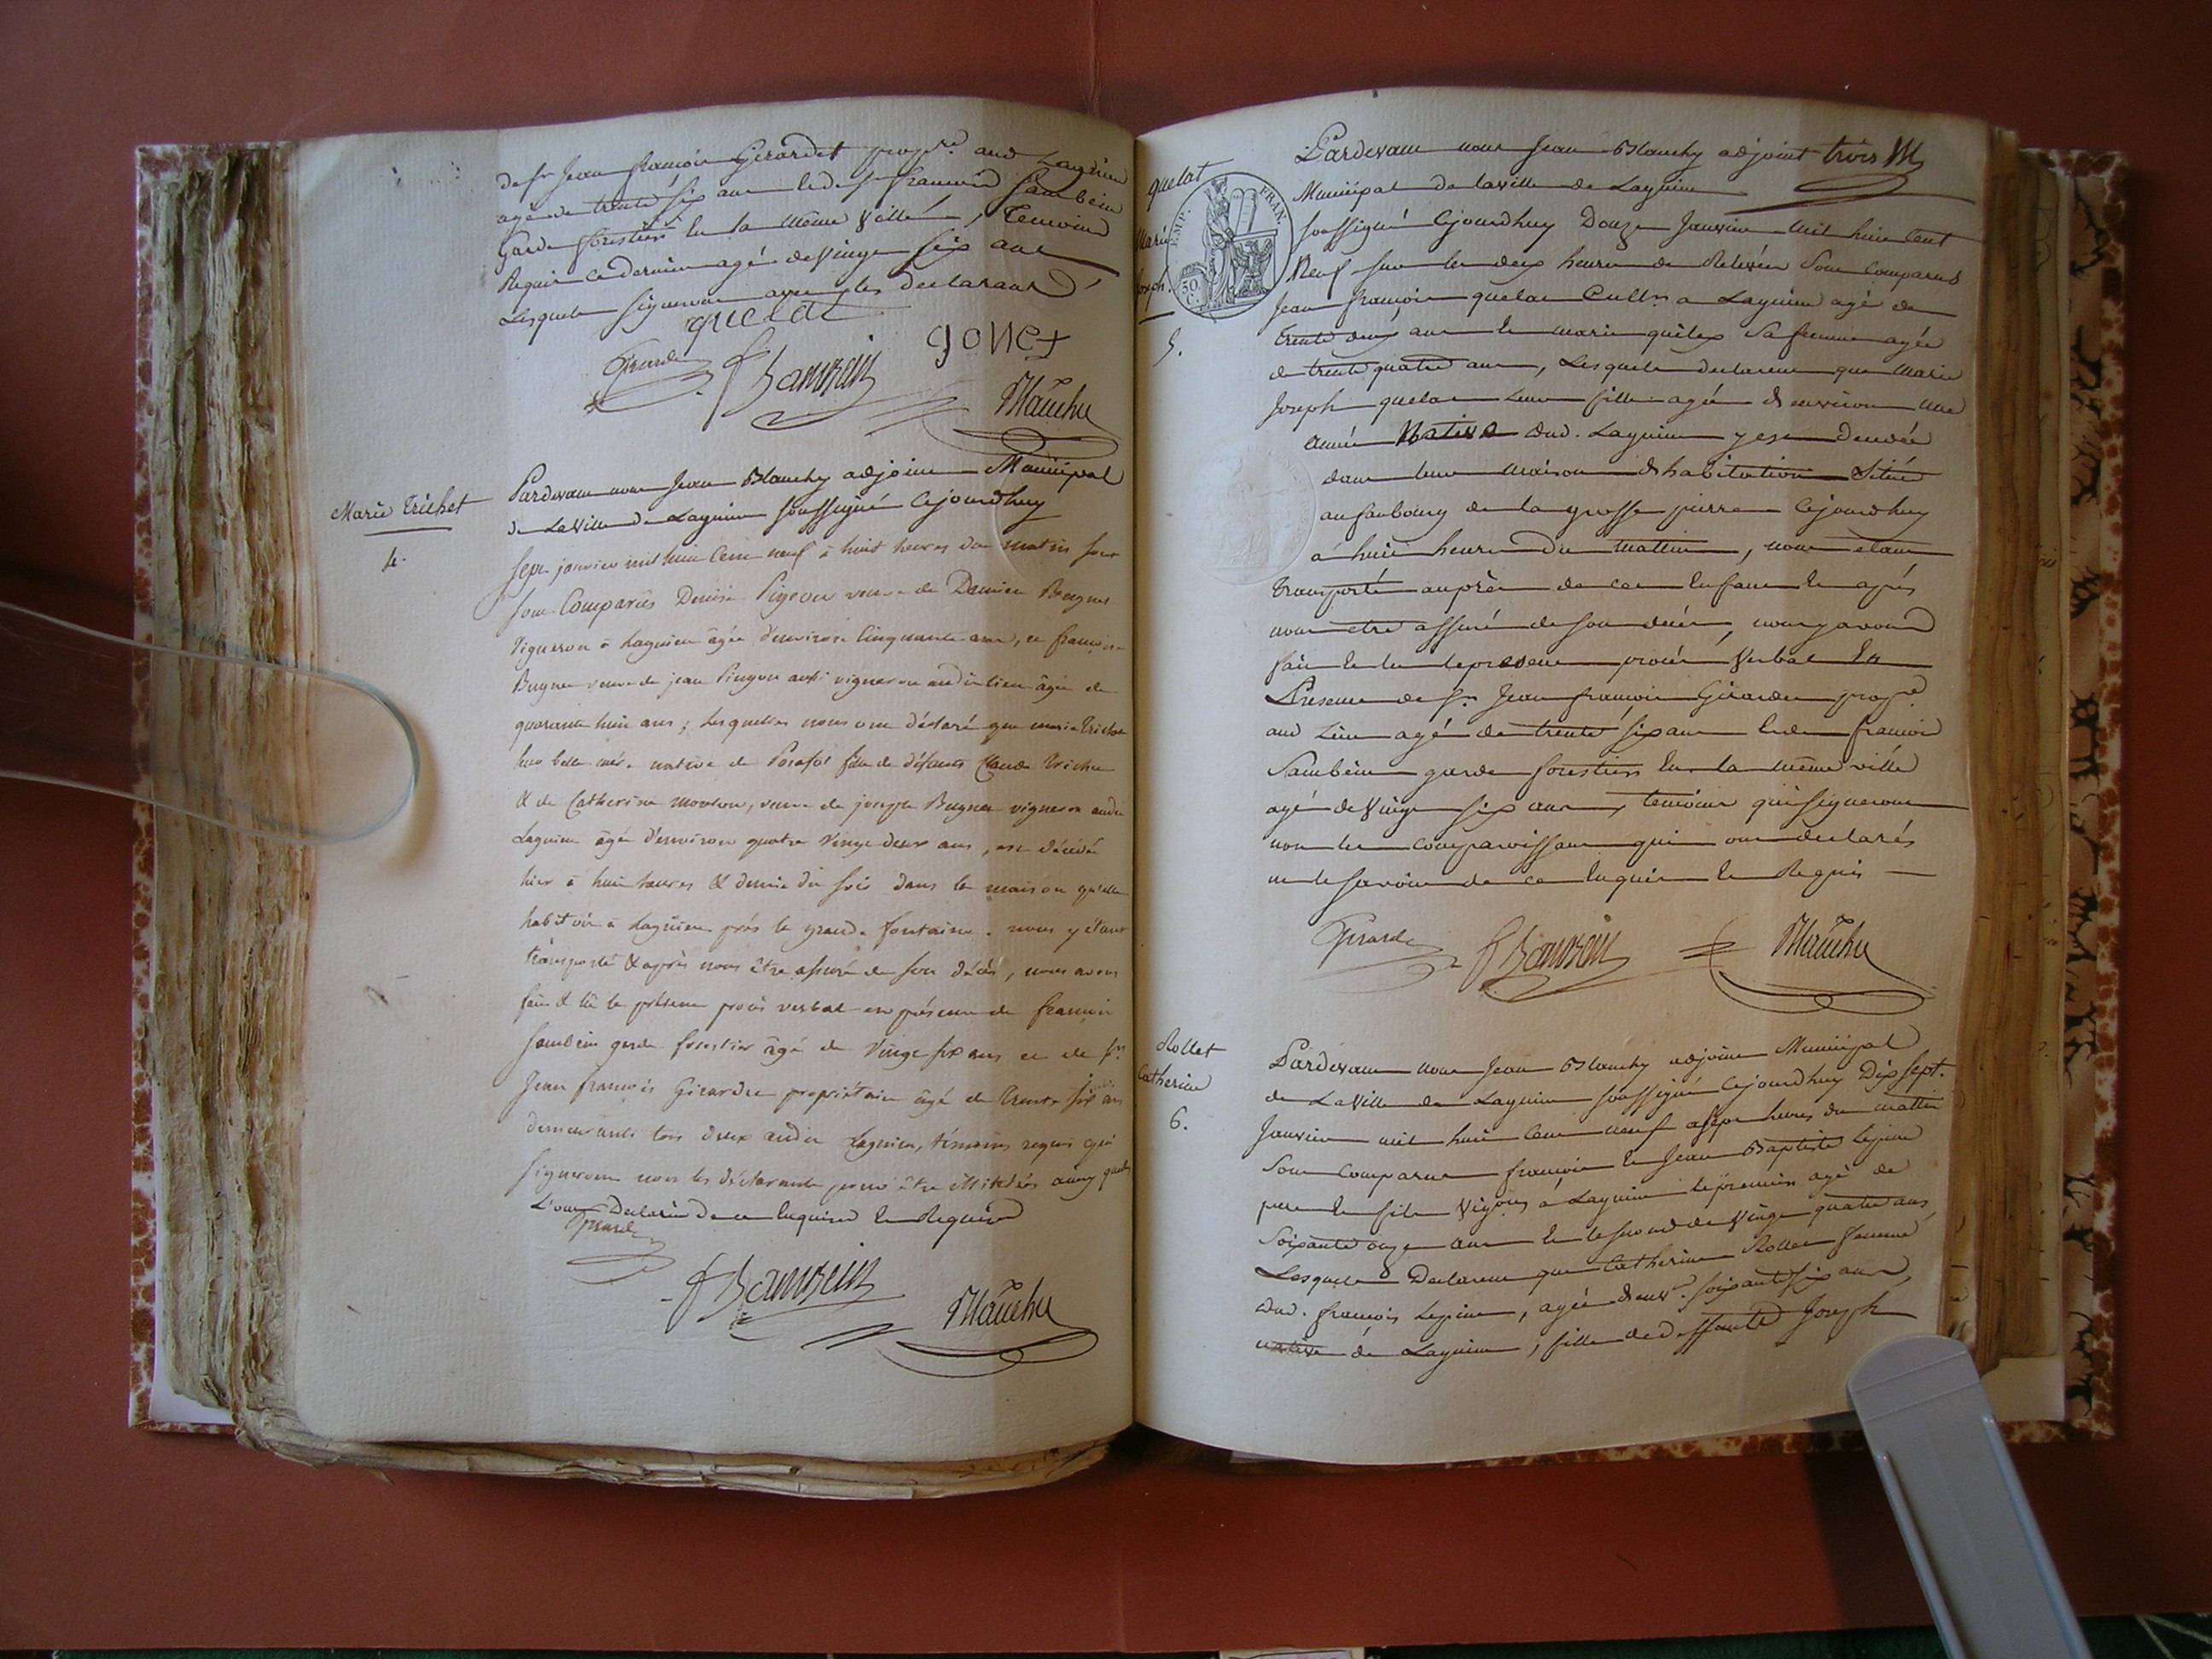 de Sr Jean françois Gerardet propre. aud Lagnieu
agé de trente six ans et de Sr françois Sambein
garde forestier en la même ville, Temoins
Requis ce dernier agé de vingt six ans
Lesquels signeront avec les declarants
quelat
Girardet
f Sambein
gonet
Blanchy
Marie Trichet
4.
Pardevant nous Jean Blanchy adjoint Municipal
de La Ville de Lagnieu soussigné Cejourdhuy
sept janvier mil huit cent neuf à huit heures du matin
sont Comparües Denise Pigeon veuve de Damien Bugnet
vigneron à Lagnieu âgée d'environ cinquante ans, et françoise
Bugnet veuve de jean Pingon aussi vigneron audit lieu âgée de
quarante huit ans; Lesquelles nous ont déclaré que marie Trichet
leur belle mère native de fille de défunts Claude Trichet
& de Catherine, veuve de joseph Bugnet vigneron audit
Lagnieu âgée d'environ quatre vingt deux ans, est décédée
hier à huit heures & demie du soir dans la maison qu'elle
habitoit à Lagnieu près la grande fontaine. nous y étant
transporté & après nous être assuré de son décès, nous avons
fait & lû le présent procès verbal en présence de françois
Sambein garde forestier âgé de vingt six ans et de Sr
Jean françois Girardet propriétaire âgé de trente six ans
demeurants tous deux audit Lagnieu, témoins requis qui
signeront non les déclarantes pour être illitérées ainsy quelles
L'ont Declarées de ce Enquises et Requises
Girardet
f Sambein
Blanchy
quelat
Marie
Joseph.
5.
EMP. FRAN.
50 C.
Pardevant nous Jean Blanchy adjoint trois
Municipal de la ville de Lagnieu
soussigné Cejourdhuy Douze Janvier mil huit Cent
Neuf sur les deux heures de Relevée Sont Comparus
Jean françois quelat Cultr a Lagnieu agé de
trente deux ans et marie sa femme agée
de trente quatre ans, Lesquels declarent que Marie
Joseph quelat Leur fille agée d'environ une
année Native dud. Lagnieu y est Decedée
dans leur maison d'habitation Située
au faubourg de la grosse pierre Cejourdhuy
a huit heures du mattin, nous etant
transporté auprès de cet Enfant et après
nous etre assuré de son décès, nous y avons
fait et lu le present procès Verbal En
Presence de Sr Jean françois Girardet propre
aud Lieu agé de trente six ans et de françois
Sambein garde forestier en la même ville
agé de Vingt six ans, temoins qui signeront
non les comparoissants qui ont declarés
ne le savoir de ce Enquis et Requis
Girardet
f Sambein
Blanchy
Rollet
Catherine
6.
Pardevant nous Jean Blanchy adjoint Municipal
de La Ville de Lagnieu soussigné Cejourdhuy Dix sept.
Janvier mil huit Cent neuf a sept heures du mattin
Sont comparus françois et Jean Baptiste Lépine
pere et fils Vigons à Lagnieu le premier agé de
Soixante onze ans et le second de Vingt quatre ans,
Lesquels Declarent que Catherine Rollet femme
dud. françois Lepine, agée d'env. soixante six ans,
native de Lagnieu, fille de deffunts Joseph